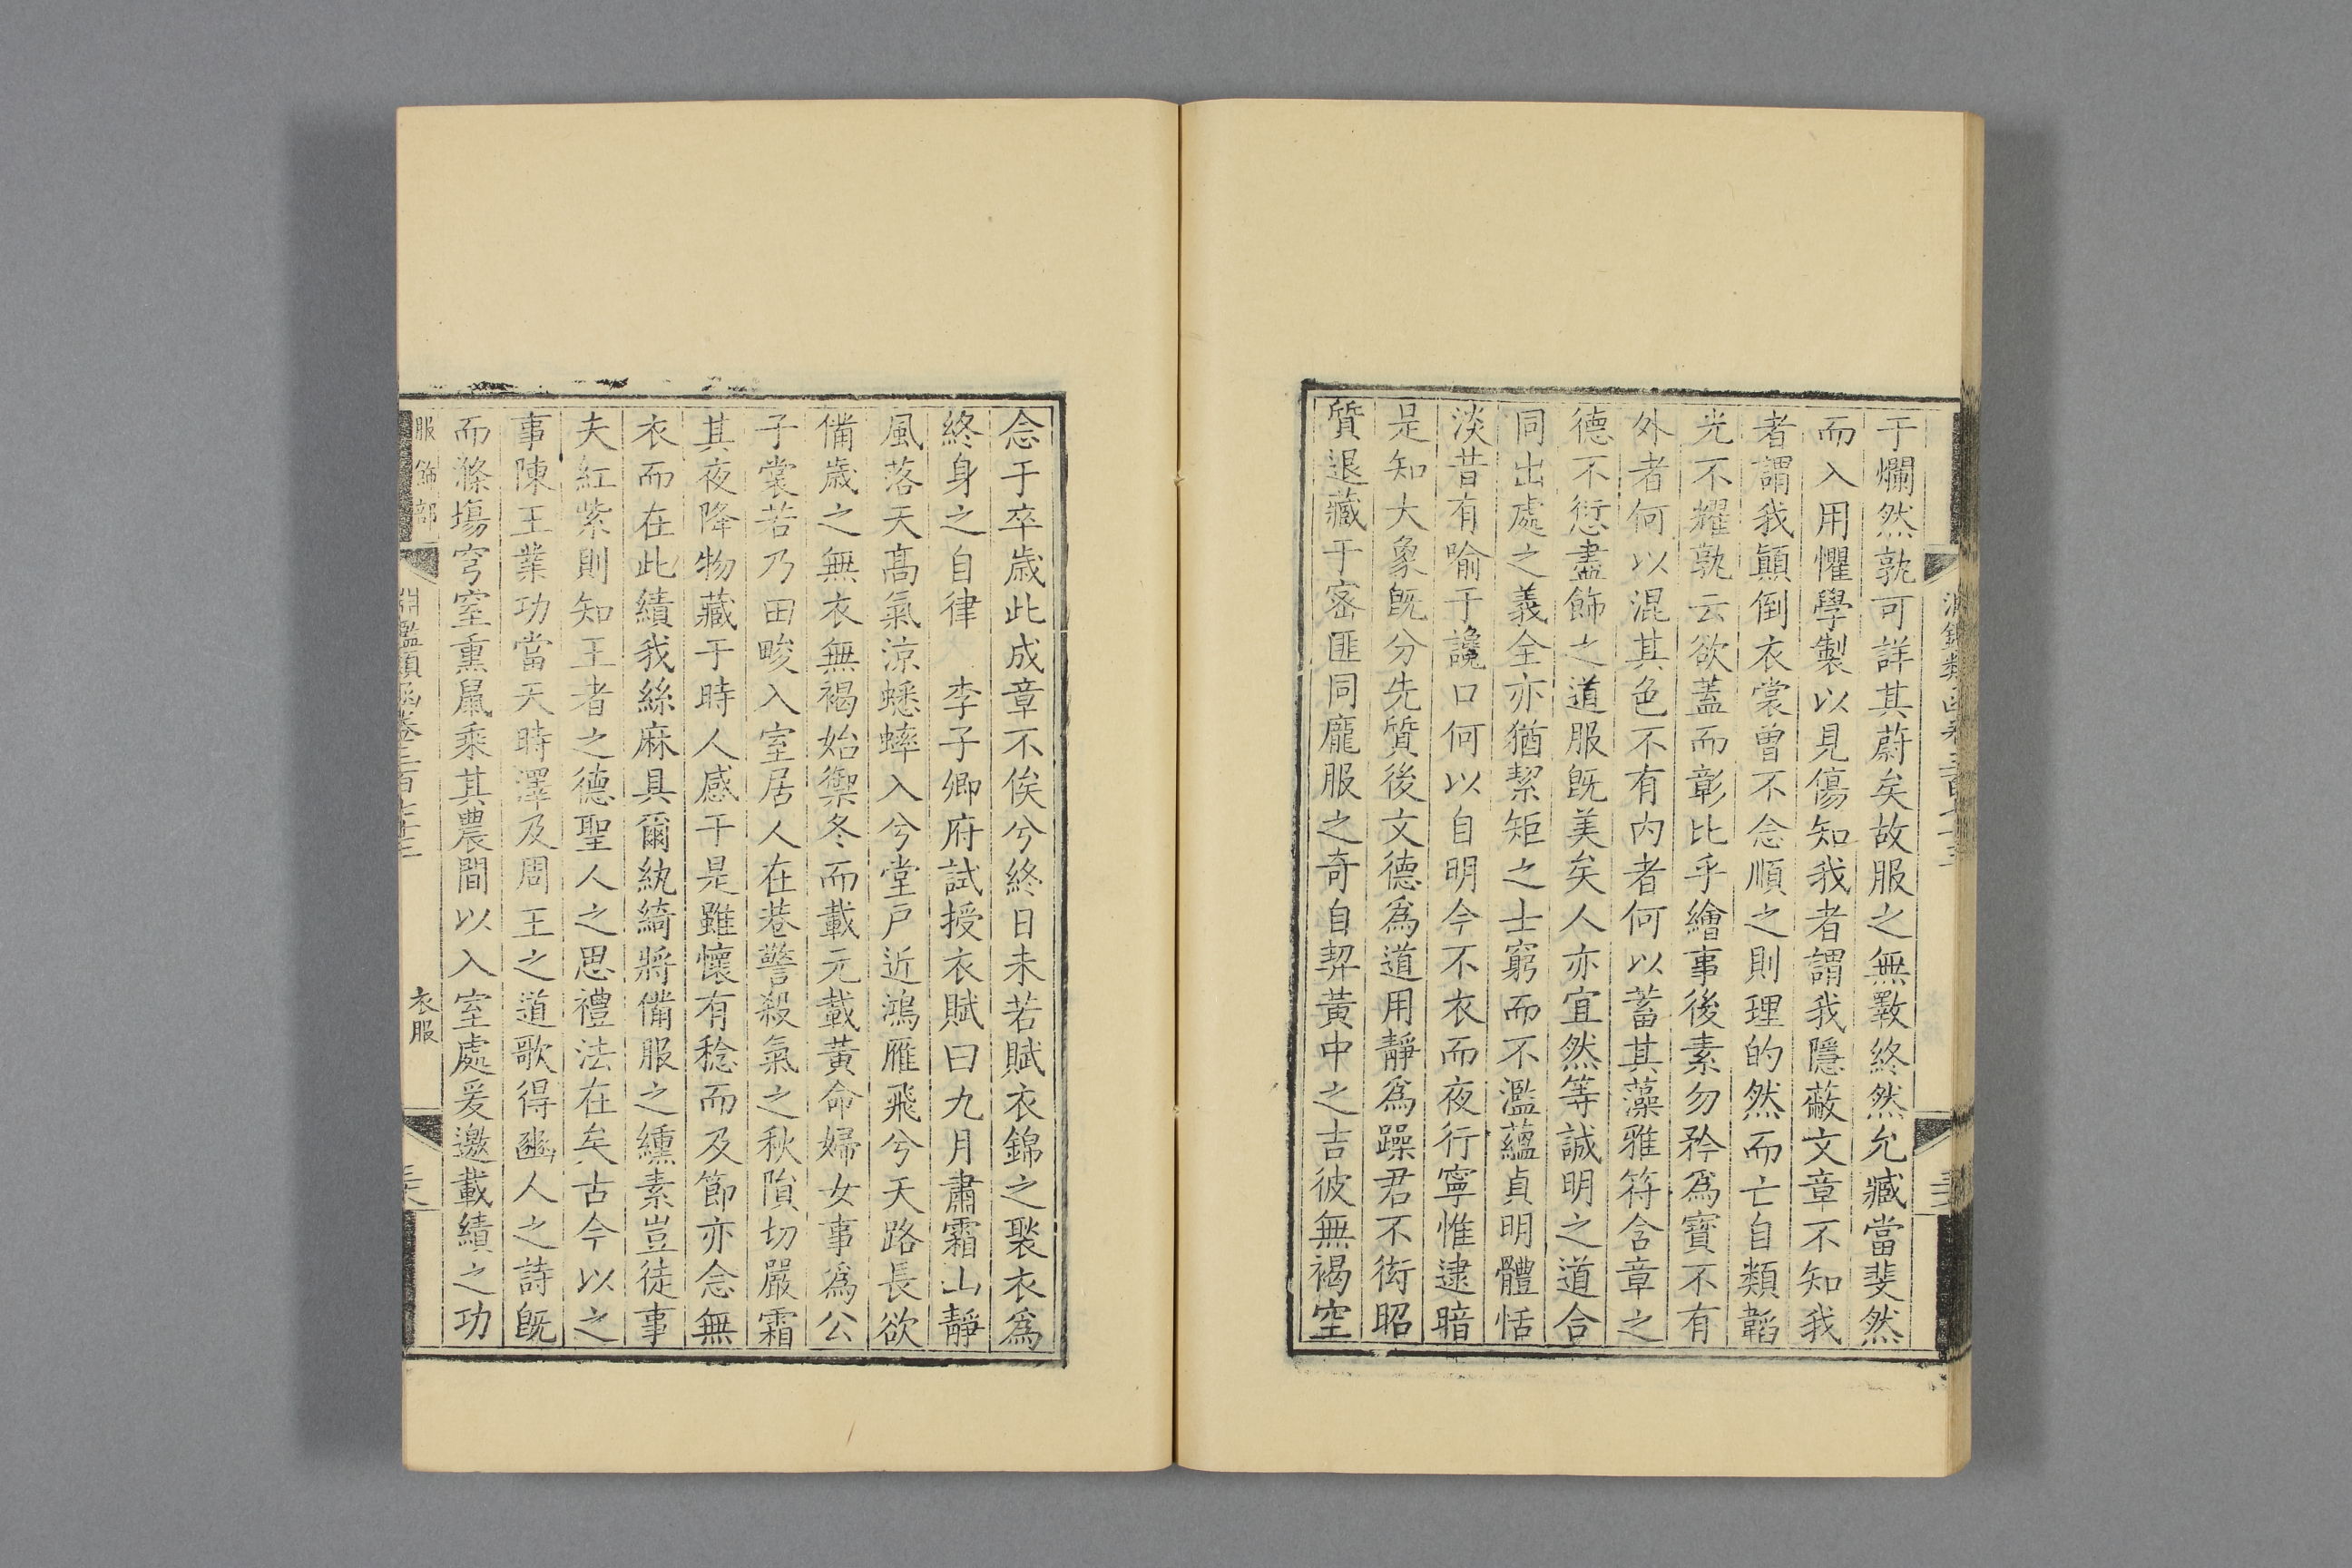 于爛然孰可詳其蔚矣故服之無斁終然允臧當斐然
而入用懼學製以見傷知我者謂我隱蔽文章不知我
者謂我顛倒衣裳曾不念順之則理的然而亡自類韜
光不耀孰云欲蓋而彰比乎繪事後素勿矜為寶不有
外者何以混其色不有內者何以蓄其藻雅符含章之
德不愆盡飾之道服旣美矣人亦宜然等誠明之道合
同出處之義全亦猶絜矩之士窮而不濫蘊貞明體恬
淡昔有喻于讒口何以自明今不衣而夜行寧惟逮暗
是知大象旣分先質後文德為道用靜為躁君不衒昭
質退藏于密匪同龐服之奇自契黃中之吉彼無褐空
念于卒歲此成章不俟兮終日未若賦衣錦之褧衣為
終身之自律　李子卿府試授衣賦曰九月肅霜山靜
風落天高氣涼蟋蟀入兮堂戶近鴻雁飛兮天路長欲
備歲之無衣無褐始禦冬而載元載黃命婦女事為公
子裳若乃田畯入室居人在巷警殺氣之秋隕切嚴霜
其夜降物藏于時人感于是雖懷有稔而及節亦念無
衣而在此績我絲麻具爾紈綺將備服之纁素豈徒事
夫紅紫則知王者之德聖人之思禮法在矣古今以之
事陳王業功當天時澤及周王之道歌得豳人之詩旣
而滌場穹窒熏鼠乘其農間以入室處爰邀載績之功
服飾部　淵鑑類函卷三百七十三　衣服　三六